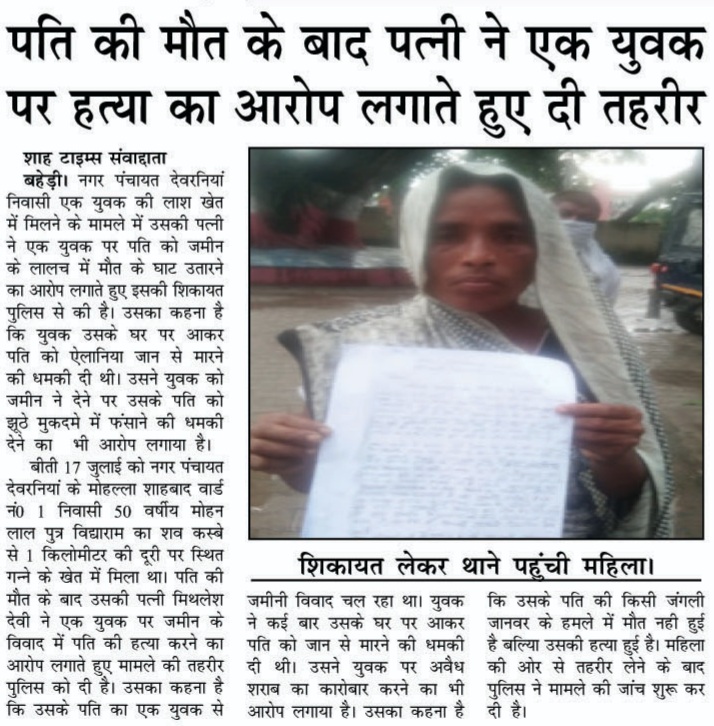 पति की मौत के बाद पत्नी ने एक युवक
पर हत्या का आरोप लगाते हुए दी तहरीर
शाह टाइम्स संवाद्दाता
बहेड़ी। नगर पंचायत देवरनियां
निवासी एक युवक की लाश खेत
में मिलने के मामले में उसकी पत्नी
ने एक युवक पर पति को जमीन
के लालच में मौत के घाट उतारने
का आरोप लगाते हुए इसकी शिकायत
पुलिस से की है। उसका कहना है
कि युवक उसके घर पर आकर
पति को ऐलानिया जान से मारने
की धमकी दी थी। उसने युवक को
जमीन ने देने पर उसके पति को
झूठे मुकदमे में फंसाने की धमकी
देने का भी आरोप लगाया है।
बीती 17 जुलाई को नगर पंचायत
देवरनियां के मोहल्ला शाहबाद वार्ड
नं0 1 निवासी 50 वर्षीय मोहन
लाल पुत्र विद्याराम का शव कस्बे
से 1 किलोमीटर की दूरी पर स्थित
गन्ने के खेत में मिला था। पति की
मौत के बाद उसकी पत्नी मिथलेश
देवी ने एक युवक पर जमीन के
विवाद में पति की हत्या करने का
आरोप लगाते हुए मामले की तहरीर
पुलिस को दी है। उसका कहना है
कि उसके पति का एक युवक से
शिकायत लेकर थाने पहुंची महिला।
जमीनी विवाद चल रहा था। युवक
ने कई बार उसके घर पर आकर
पति को जान से मारने की धमकी
दी थी। उसने युवक पर अवैध
शराब का कारोबार करने का भी
आरोप लगाया है। उसका कहना है
कि उसके पति की किसी जंगली
जानवर के हमले में मौत नही हुई
है बल्यिा उसकी हत्या हुई है। महिला
की ओर से तहरीर लेने के बाद
पुलिस ने मामले की जांच शुरू कर
दी है।